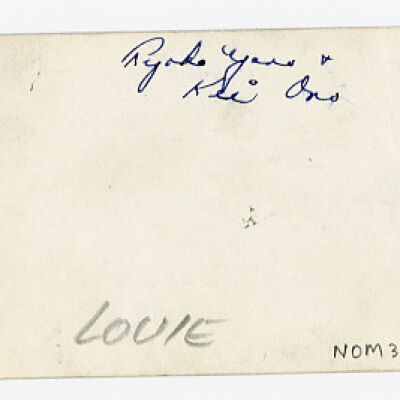 Ryoko Yano +
Kei Ono
LOUIE
NOM3